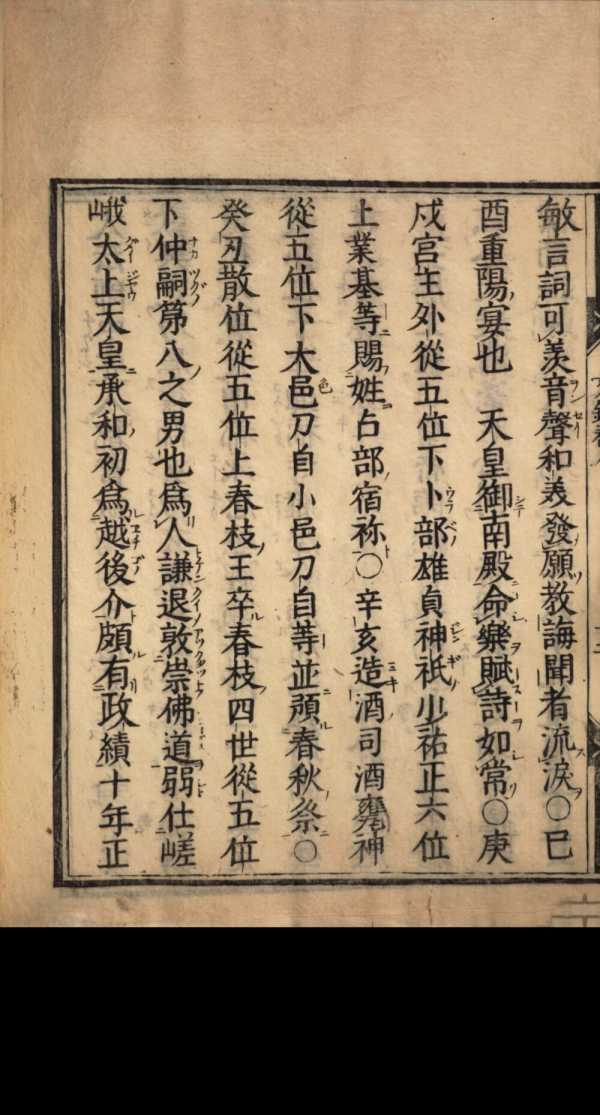 敏言詞可羨音聲和美發願教誨聞者流淚〇巳
酉重陽宴也　天皇御南殿命樂賦詩如常〇庚
戌宮主外從五位下卜部雄貞神祇少祐正六位
上業基等賜姓占部宿祢〇辛亥造酒司酒甕神
從五位下大邑刀自小邑刀自等並預春秋祭〇
癸丑散位從五位上春枝王卒春枝四世從五位
下仲嗣第八之男也爲人謙退敦崇佛道弱仕嵯
峨太上天皇承和初爲越後介頗有政績十年正